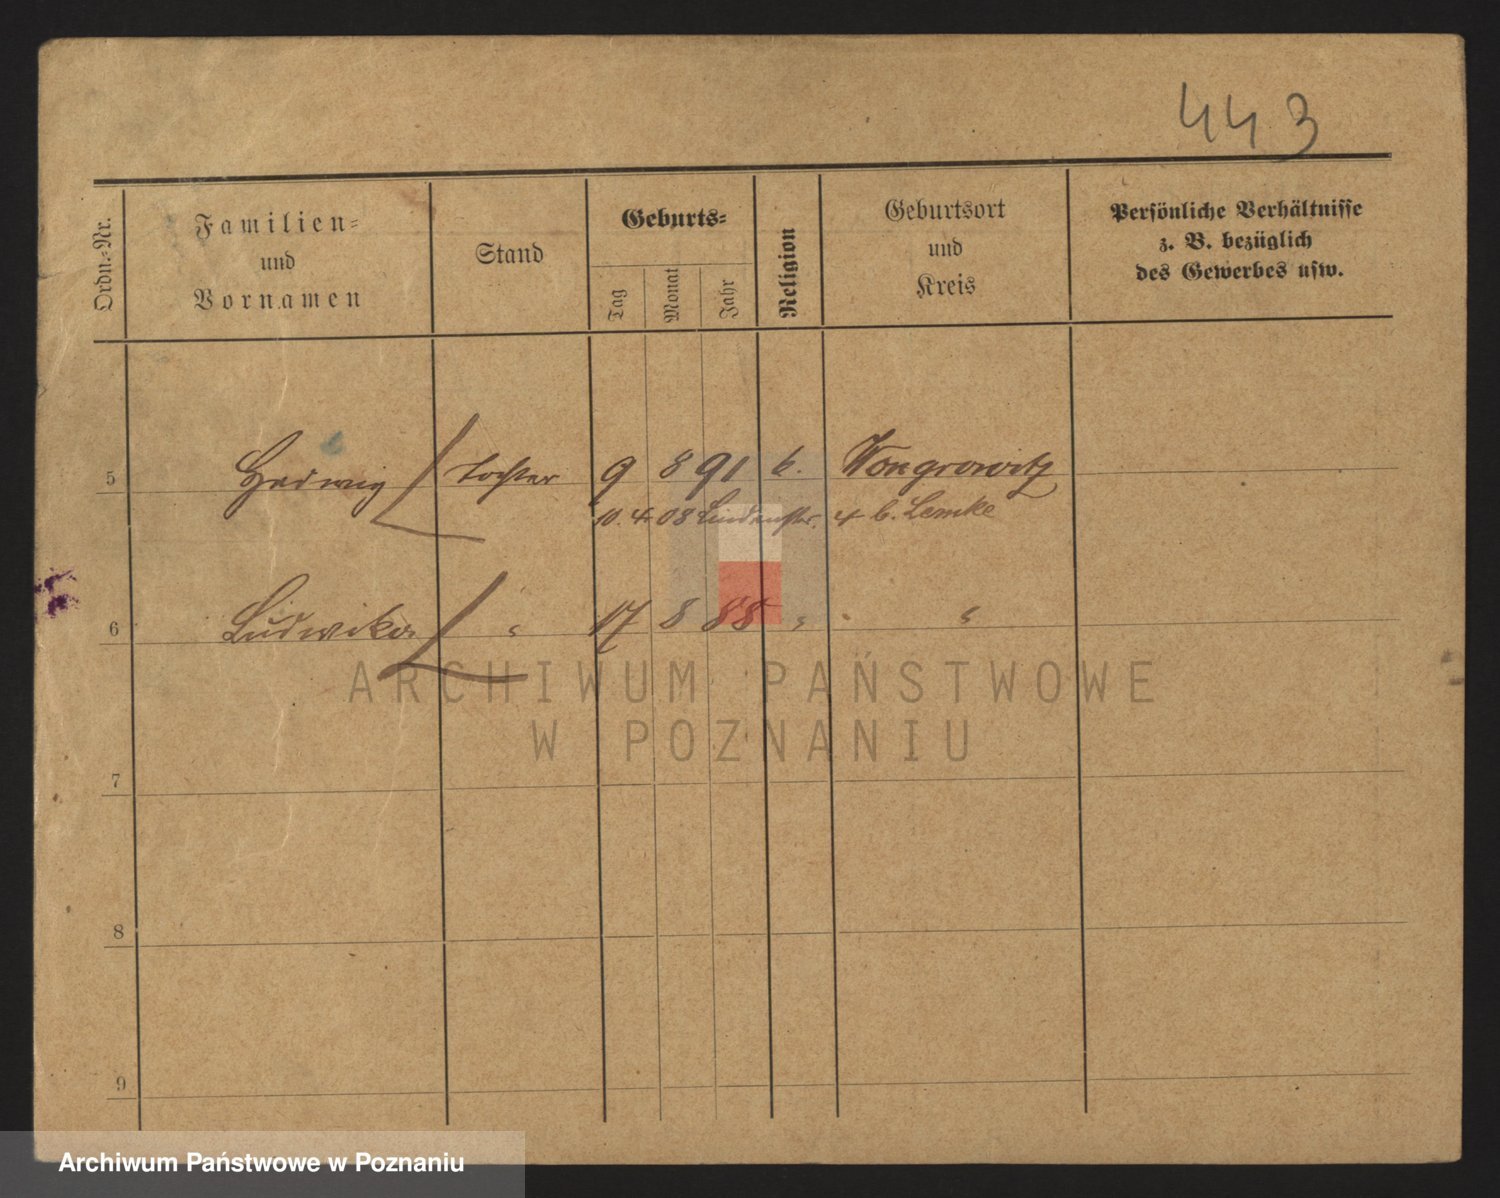 443
Ordn.-Nr.
Familien-
und
Vornamen
Stand
Geburts-
Tag
Monat
Jahr
Religion
Geburtsort
und
Kreis
Persönliche Verhältnisse
z. B. bezüglich
des Gewerbes usw.
5 Hedwig Tochter 9 8 91 k. Wongrowitz
10. 4. 08 Lindenstr. 4 b. Lemke
6 Ludwika " 17 8 88 " "
ARCHIWUM PAŃSTWOWE
W POZNANIU
7
8
9
Archiwum Państwowe w Poznaniu